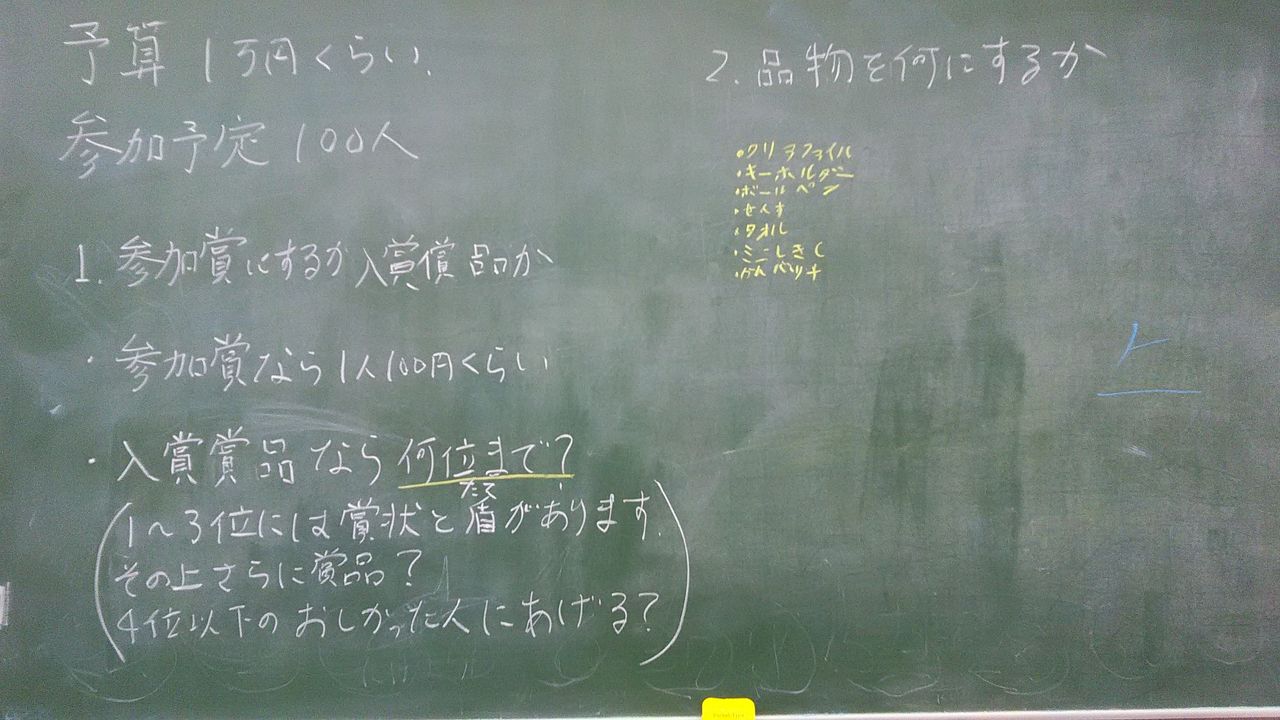 予算 1万円くらい.
参加予定 100人
1. 参加賞にするか 入賞賞品か
・参加賞なら1人100円くらい
・入賞賞品なら何位まで?
たて
(1〜3位には賞状と盾があります.
その上さらに賞品?
4位以下のおしかった人にあげる?)
2. 品物を何にするか
・クリアファイル
・キーホルダー
・ボールペン
・せんす
・タオル
・ミニしきし
・かんバッチ
上